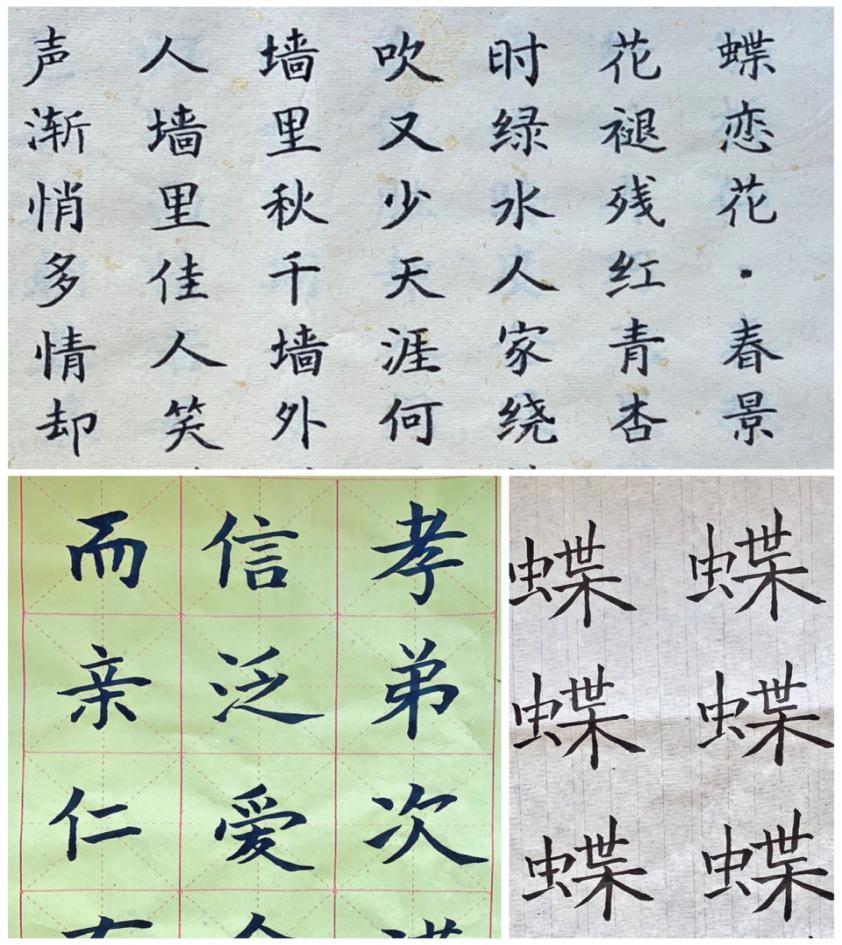 蝶恋花·春景
花褪残红青杏
时绿水人家绕
吹又少天涯何
墙里秋千墙外
人墙里佳人笑
声渐悄多情却
孝弟次
信泛爱
而亲仁
蝶蝶蝶
蝶蝶蝶